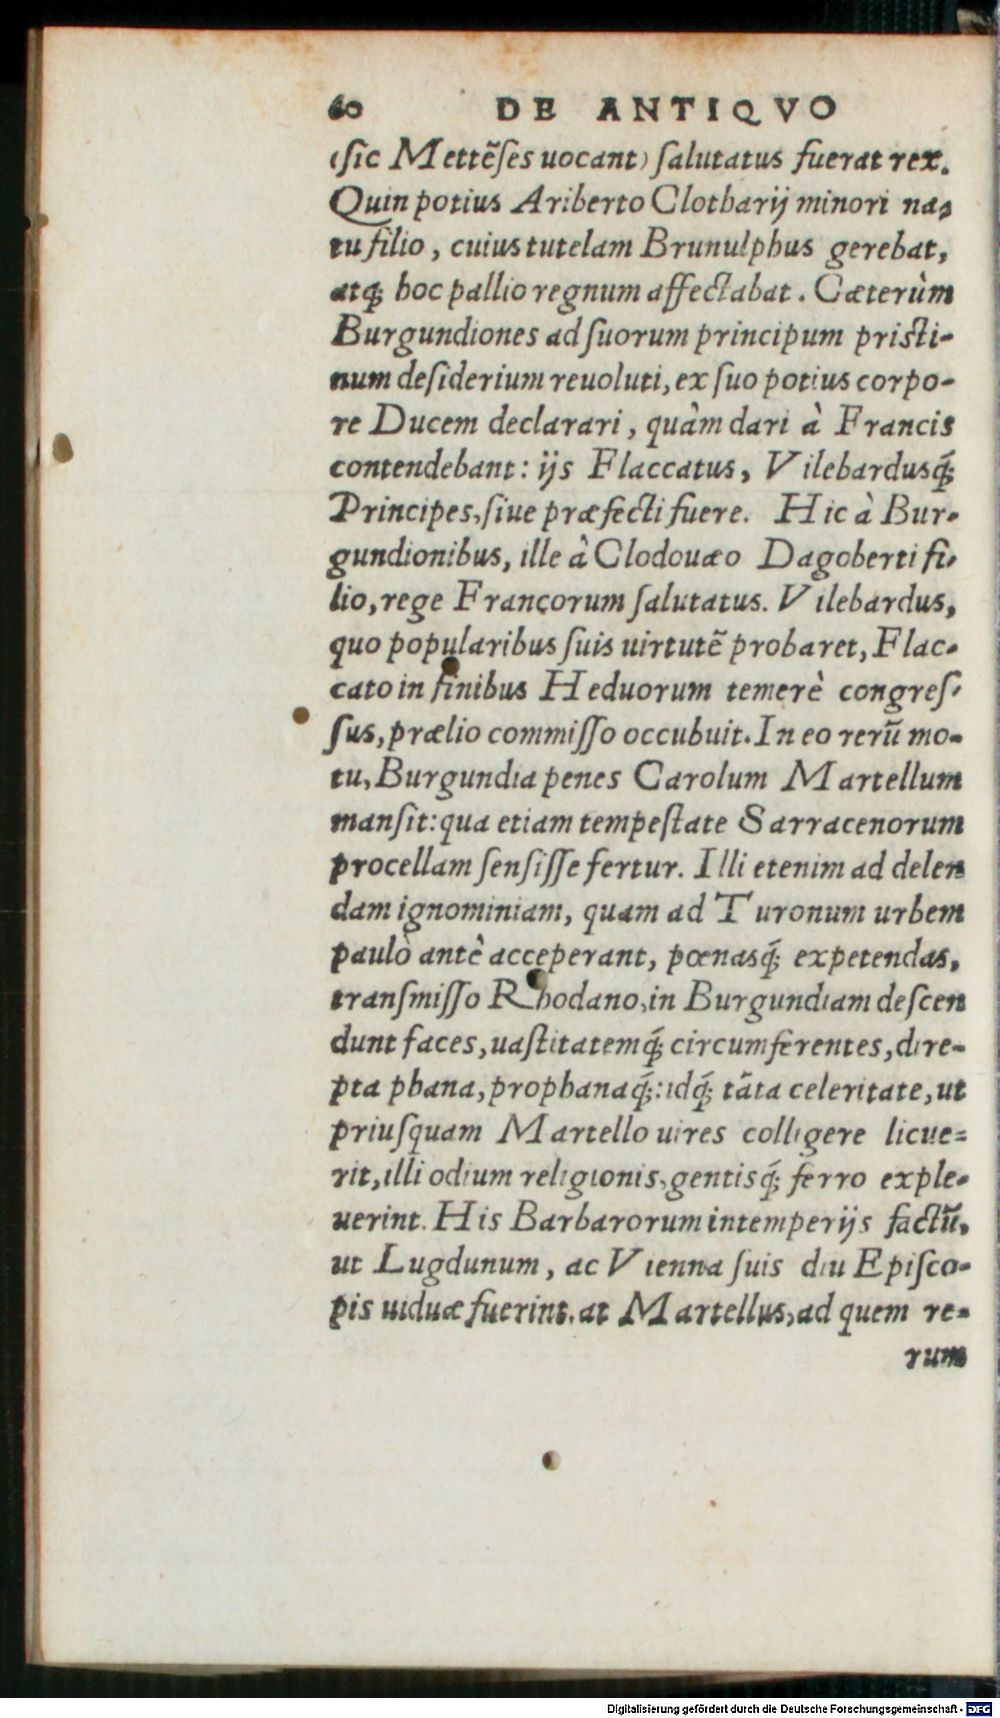 60 DE ANTIQVO
(ſic Mettẽſes uocant) ſalutatus fuerat rex.
Quin potius Ariberto Clotharij minori na-
tu filio, cuius tutelam Brunulphus gerebat,
atq́; hoc pallio regnum affectabat. Cæterùm
Burgundiones ad ſuorum principum priſti-
num deſiderium reuoluti, ex ſuo potius corpo-
re Ducem declarari, quàm dari à Francis
contendebant: ijs Flaccatus, Vilebardusq́;
Principes, ſiue præfecti fuere. Hic à Bur-
gundionibus, ille â Clodouæo Dagoberti fi-
lio, rege Francorum ſalutatus. Vilebardus,
quo popularibus ſuis uirtutẽ probaret, Flac-
cato in finibus Heduorum temerè congreſ-
ſus, prælio commiſſo occubuit. In eo rerũ mo-
tu, Burgundia penes Carolum Martellum
manſit: qua etiam tempeſtate Sarracenorum
procellam ſenſiſſe fertur. Illi etenim ad delen
dam ignominiam, quam ad Turonum urbem
paulò antè acceperant, pœnasq́; expetendas,
tranſmiſſo Rhodano, in Burgundiam deſcen
dunt faces, uaſtitatemq́; circumferentes, dire-
pta phana, prophanaq́;: idq́; tãta celeritate, ut
priuſquam Martello uires colligere licue-
rit, illi odium religionis, gentisq́; ferro exple-
uerint. His Barbarorum intemperijs factũ,
ut Lugdunum, ac Vienna ſuis diu Epiſco-
pis uiduæ fuerint. at Martellus, ad quem re-
rum
Digitalisierung gefördert durch die Deutsche Forschungsgemeinschaft - DFG